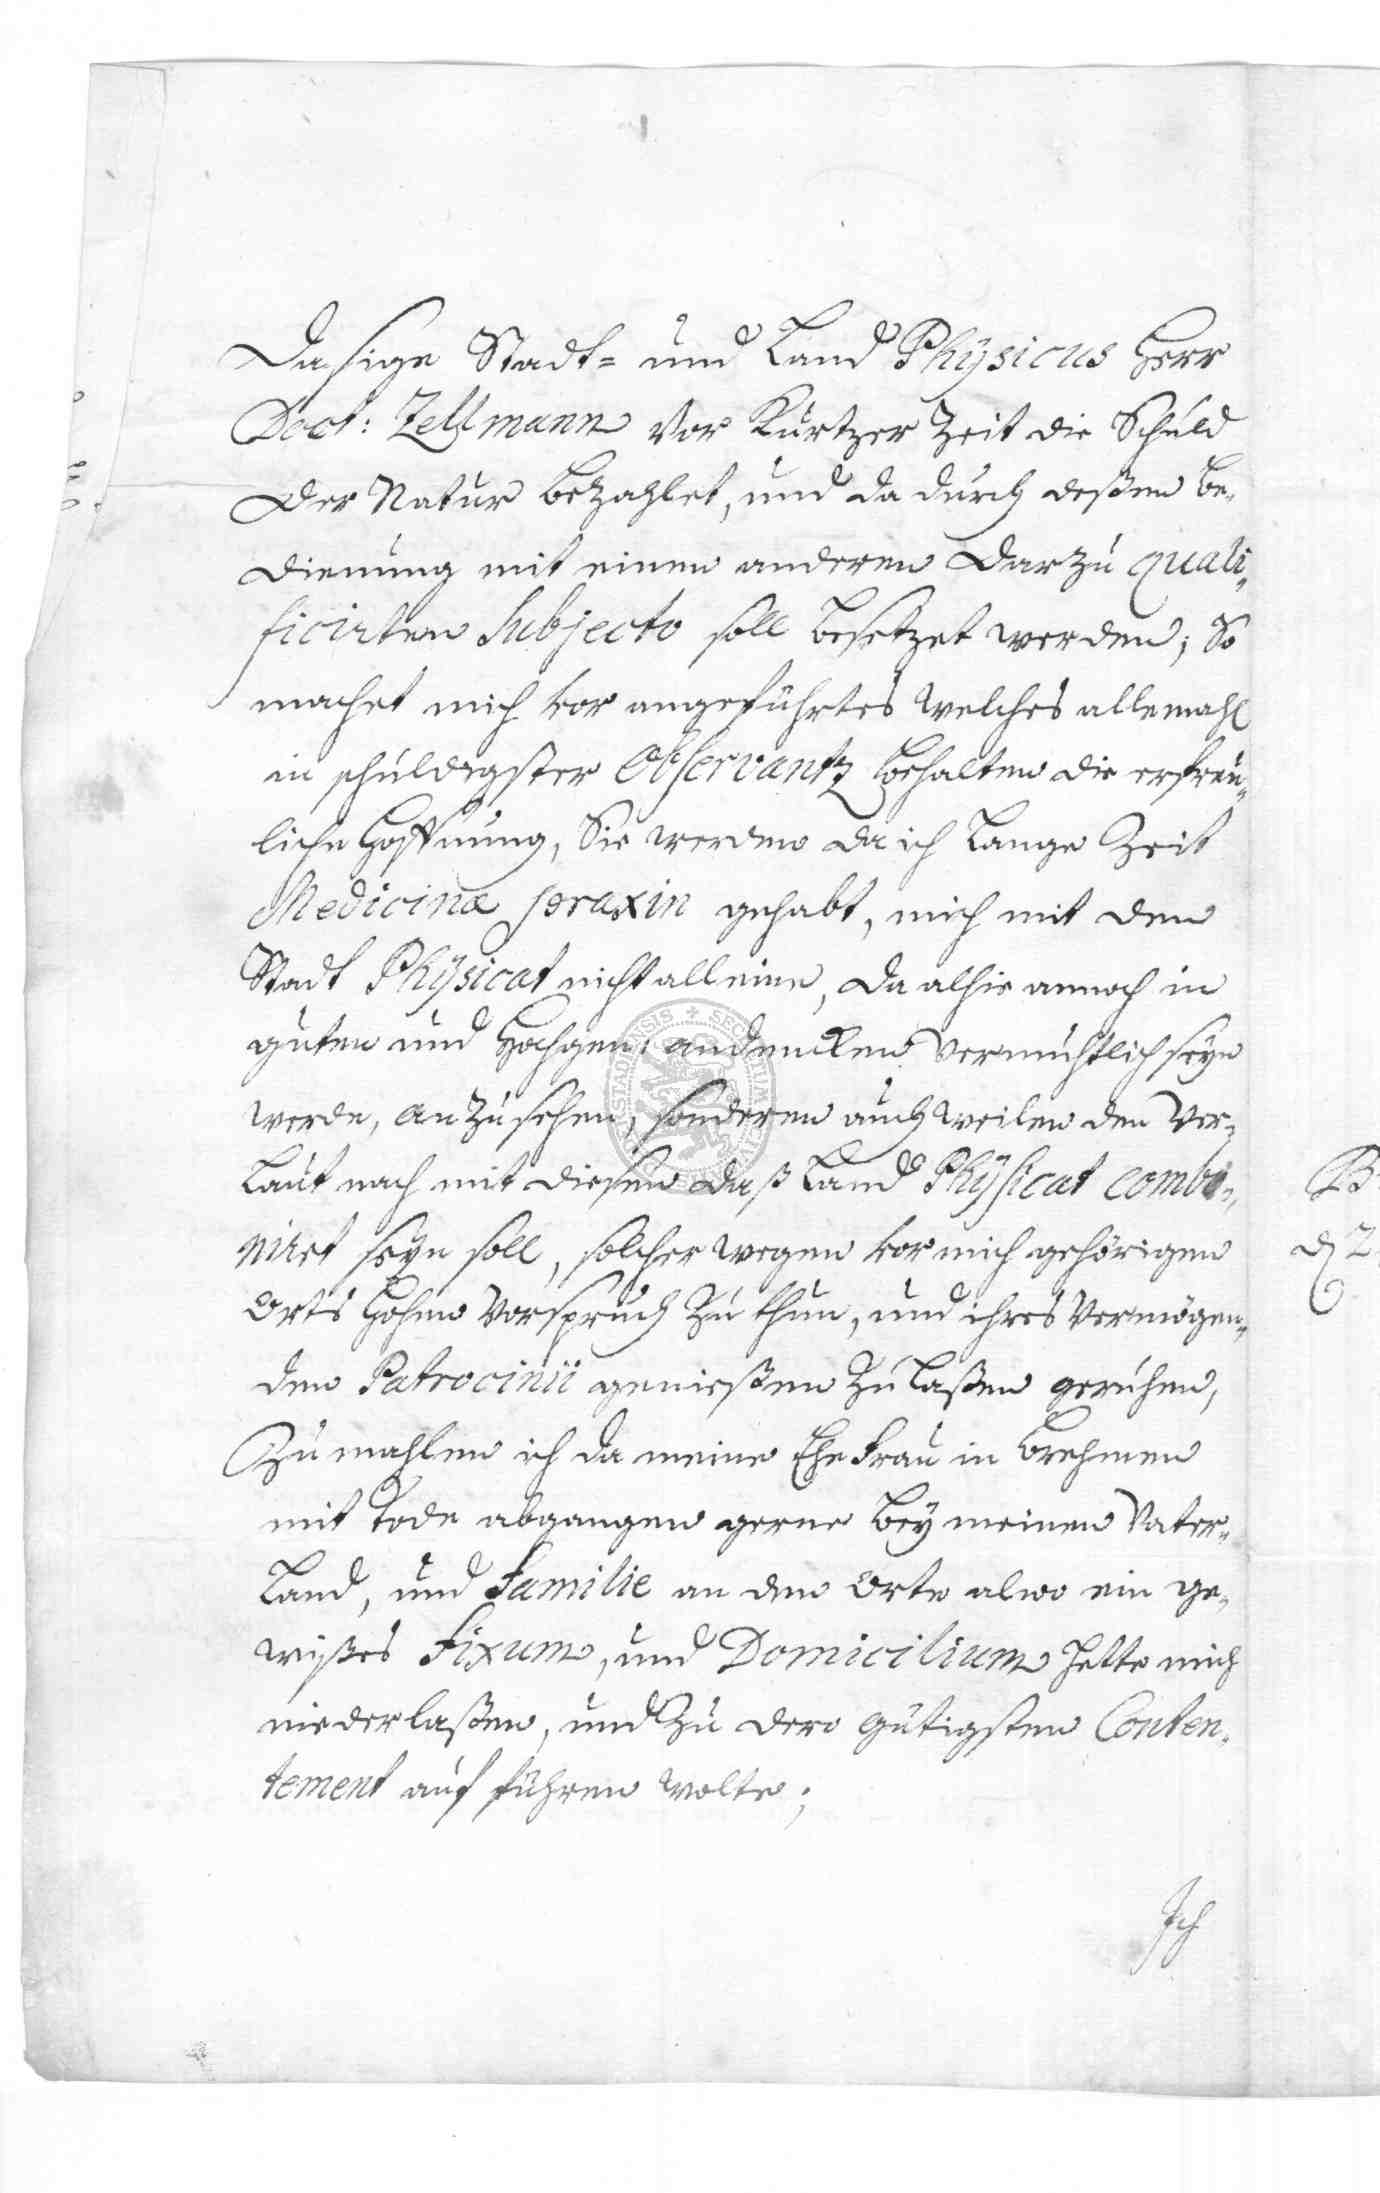 Dasige Stadt= und Land Physicus Herr
Doct: Zellmann vor kurtzer Zeit die Schuld
der Natur bezahlet, und da durch deßen be-
dienung mit einen anderen darzu quali-
ficirten Subjecto soll besetzet werden; So
machet mich vor angeführtes welches allemahl
in schuldigster Observantz behalten die erfreu-
liche Hoffnung, Sie werden da ich lange Zeit
Medicinæ praxin gehabt, mich mit den
Stadt Physicat nicht alleine, da alhie annoch in
guten und Hochgen: andencken vermuhtlich seyn
werde, anzusehen, sonderen auch weilen den Ver-
laut nach mit diesen daß Land Physicat combi-
niret seyn soll, solcher wegen vor mich gehörigen
Orts Hohen Vorspruch zu thun, und ihres Vermögen-
den Patrocinii genießen zu laßen geruhen,
Zu mahlen ich da meine Ehefrau in Brehmen
mit Tode abgangen gerne bey meinen Vater-
land, und Familie an den Orte alwo ein ge-
wißes Fixum, und Domicilium hette mich
niederlaßen, und zu dero gütigsten Conten-
tement auf führen wolte;
Ich